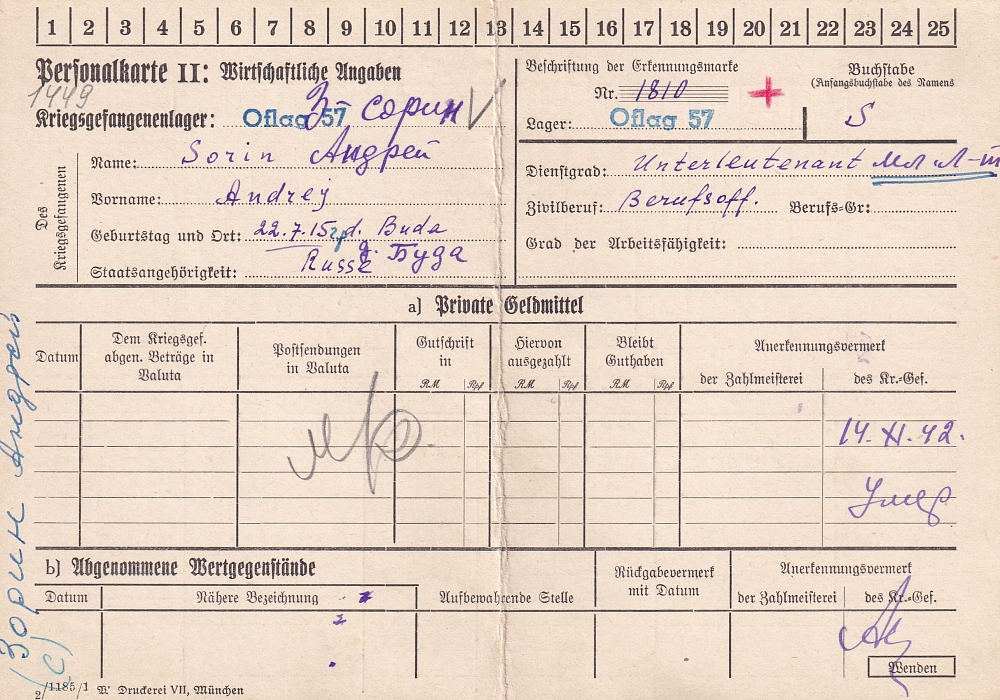 1 2 3 4 5 6 7 8 9 10 11 12 13 14 15 16 17 18 19 20 21 22 23 24 25
Personalkarte II: Wirtschaftliche Angaben
1449
Kriegsgefangenenlager: Oflag 57 Сорин
Des Kriegsgefangenen
Name: Sorin Андрей
Vorname: Andrej
Geburtstag und Ort: 22.7.15 d. Buda
д. Буда
Staatsangehörigkeit: Russe
Beschriftung der Erkennungsmarke
Nr. 1810
Lager: Oflag 57
Buchstabe
(Anfangsbuchstabe des Namens
S
Dienstgrad: Unterleutenant мл л-т
Zivilberuf: Berufsoff. Berufs-Gr:
Grad der Arbeitsfähigkeit:
a) Private Geldmittel
Datum
Dem Kriegsgef. abgen. Beträge in Valuta
Postsendungen in Valuta
Gutschrift in
RM Rpf
Hiervon ausgezahlt
RM Rpf
Bleibt Guthaben
RM Rpf
Anerkennungsvermerk
der Zahlmeisterei des Kr.-Gef.
14.XI.42.
Умер
b) Abgenommene Wertgegenstände
Datum Nähere Bezeichnung Aufbewahrende Stelle
Rückgabevermerk mit Datum
Anerkennungsvermerk
der Zahlmeisterei des Kr.-Gef.
Wenden
2/1185/1 Druckerei VII, München
Зорин Андрей
(С)